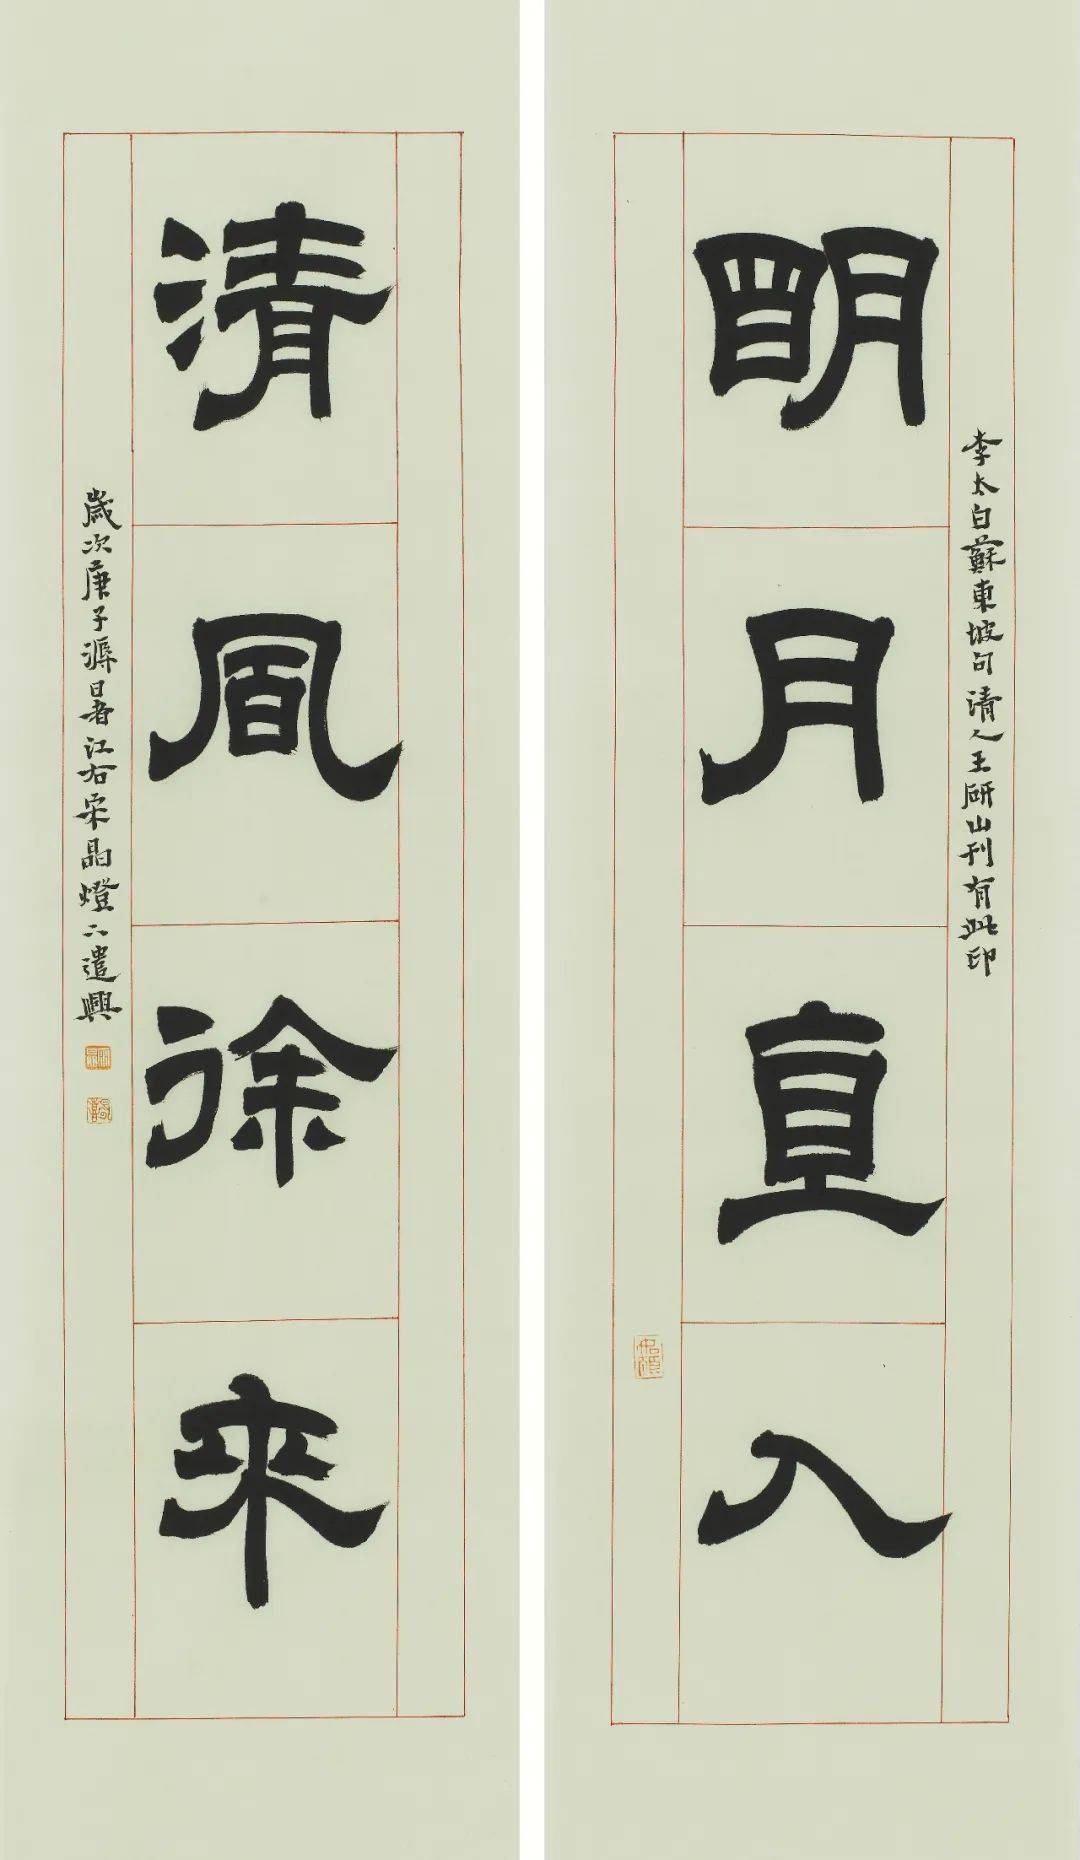 李太白蘇東坡句清人王研山刊有此印
明月直入
清風徐來
歲次庚子溽暑江右宋晶燈下遣興